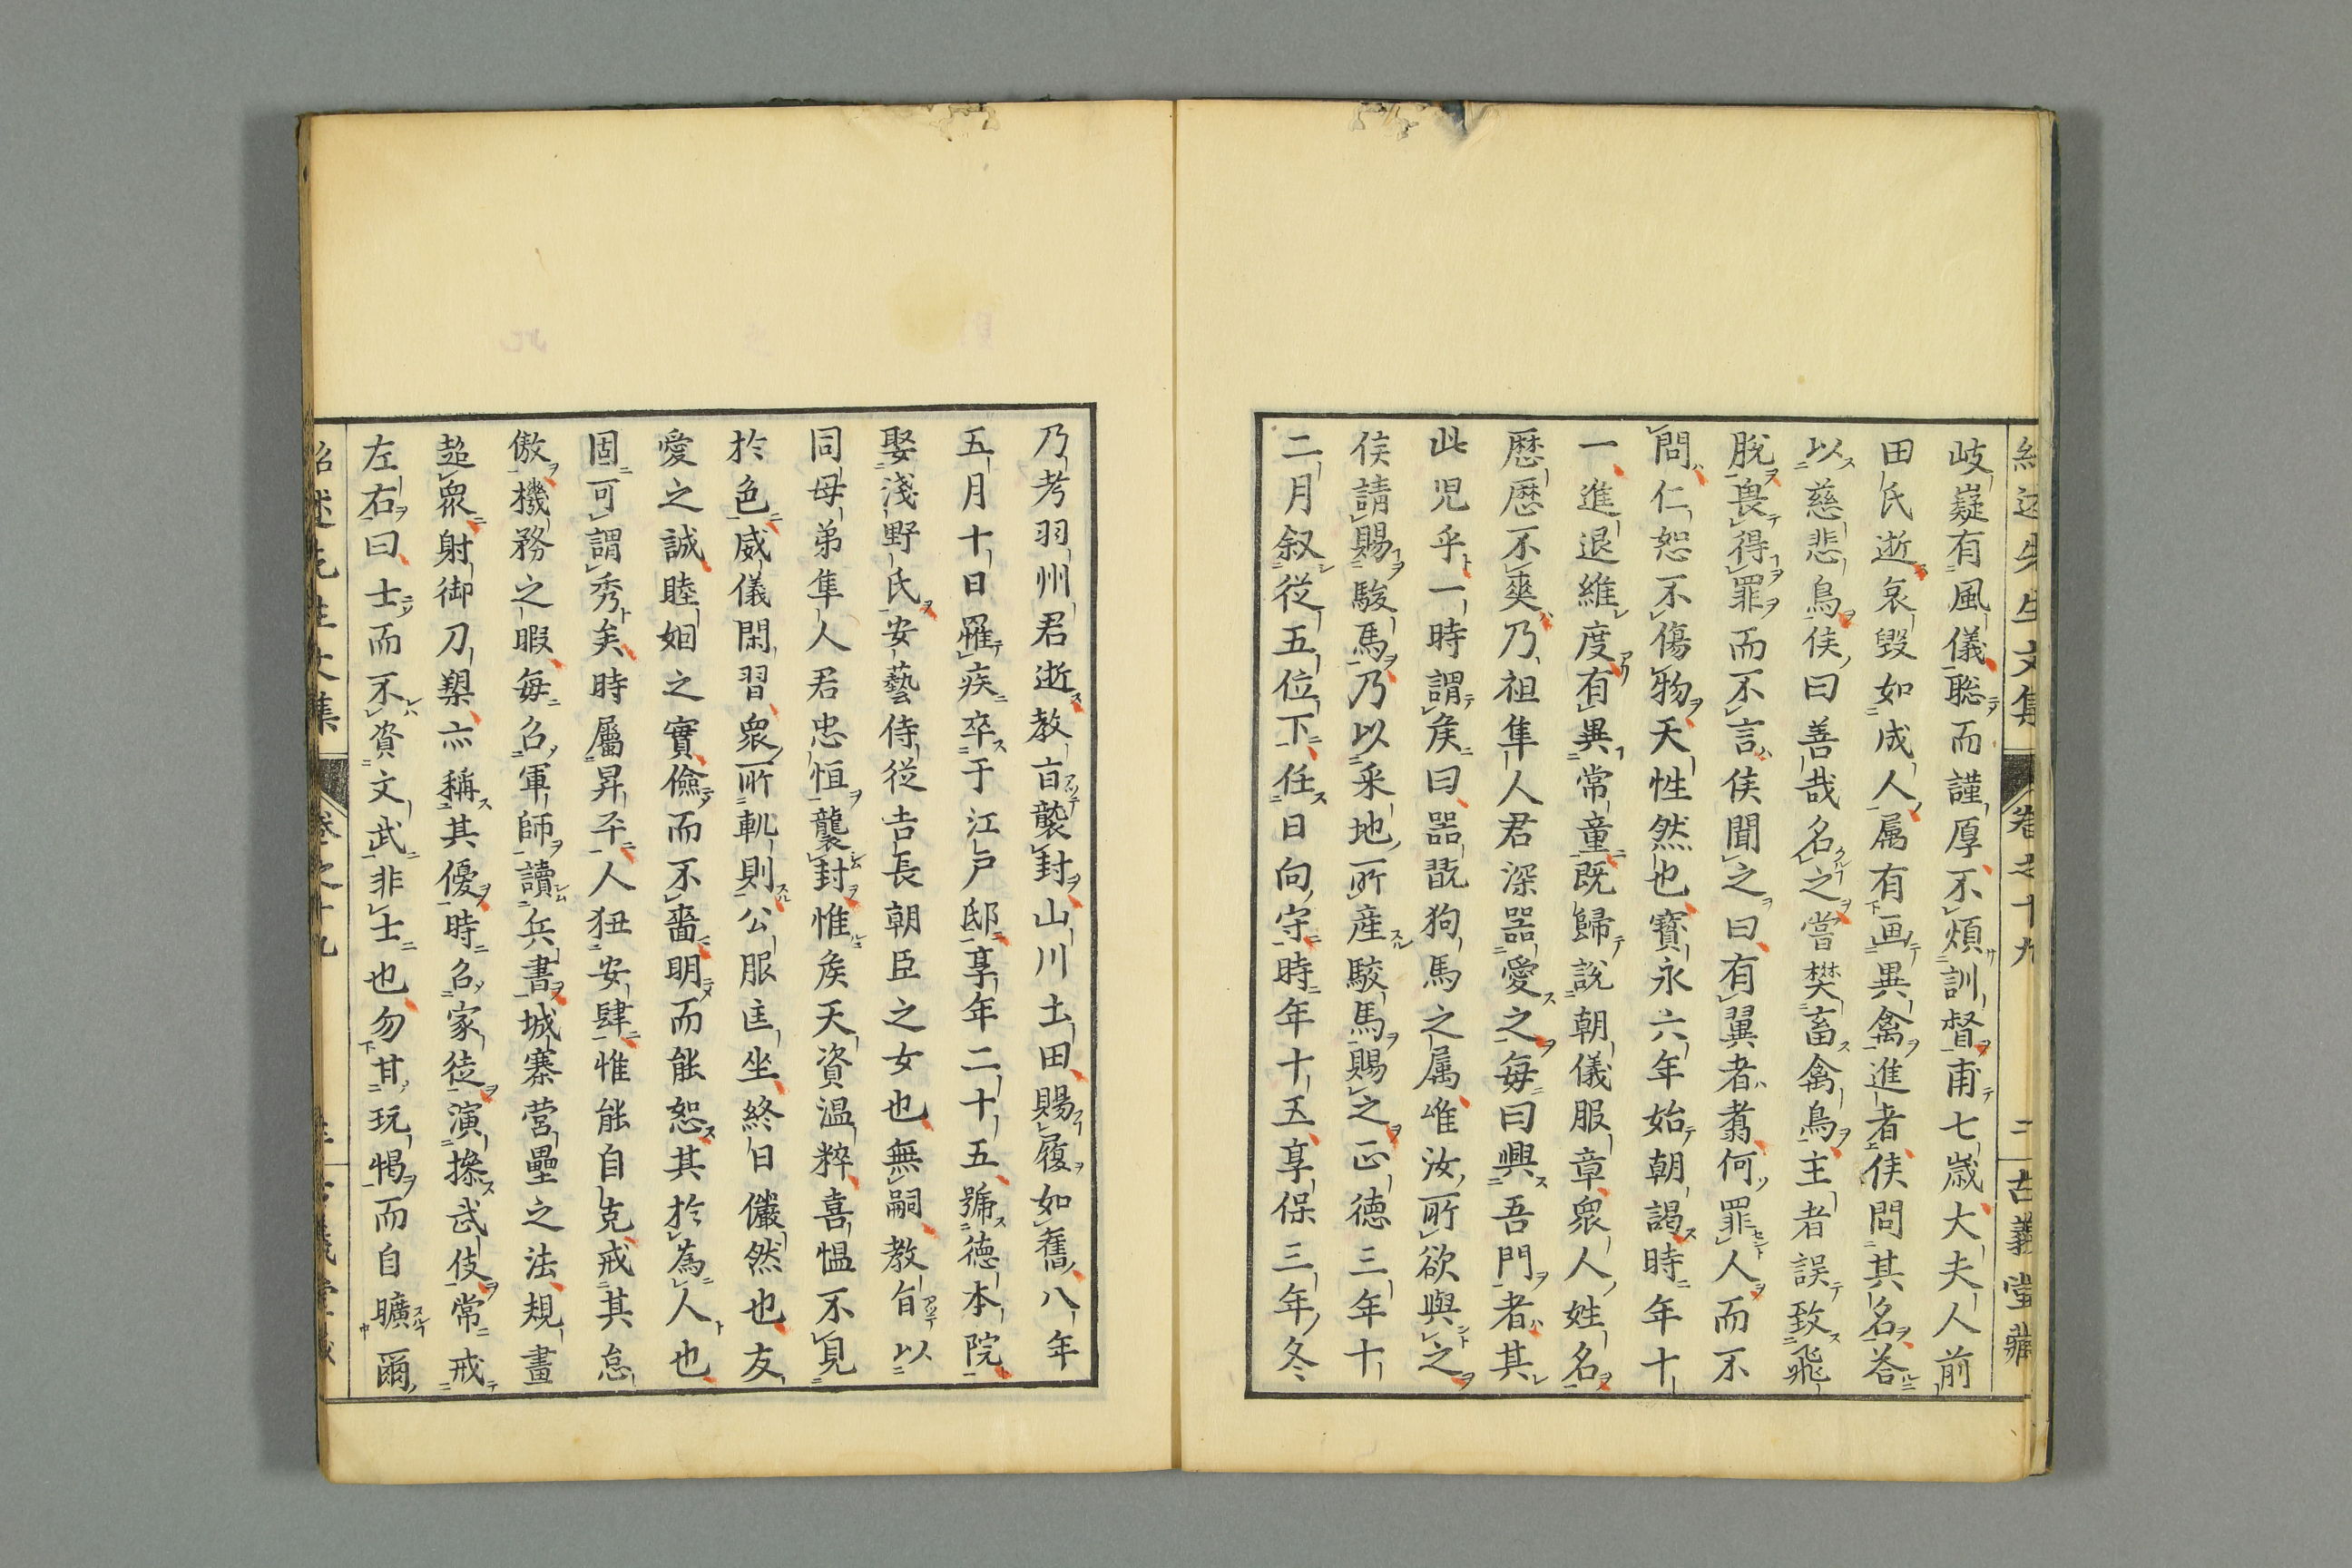 紹述先生文集 卷之十九 二 古義堂藏
岐嶷有風儀聡而謹厚不煩訓督甫七歳大夫人前
田氏逝哀毀如成人属有画異禽進者侯問其名荅
以慈悲鳥侯曰善哉名之嘗樊畜禽鳥主者誤致飛
脱畏得罪而不言侯聞之曰有翼者翥何罪人而不
問仁恕不傷物天性然也寳永六年始朝謁時年十
一進退維度有異常童既歸説朝儀服章衆人姓名
歴歴不爽乃祖隼人君深器愛之毎曰興吾門者其
此児乎一時謂矦曰器翫狗馬之属唯汝所欲與之
侯請賜駿馬乃以采地所産駮馬賜之正徳三年十
二月叙從五位下任日向守時年十五享保三年冬
乃考羽州君逝教旨襲封山川土田賜履如舊八年
五月十日罹疾卒于江戸邸享年二十五號徳本院
娶淺野氏安藝侍從吉長朝臣之女也無嗣教旨以
同母弟隼人君忠恒襲封惟矦天資温粹喜慍不見
於色威儀閑習衆所軌則公服匡坐終日儼然也友
愛之誠睦姻之實儉而不嗇明而能恕其於為人也
固可謂秀矣時屬昇平人狃安肆惟能自克戒其怠
傲機務之暇毎召軍師讀兵書城寨營壘之法規畫
超衆射御刀槊亦稱其優時召家徒演操武伎常戒
左右曰士而不資文武非士也勿甘玩愒而自曠爾
紹述先生文集 卷之十九